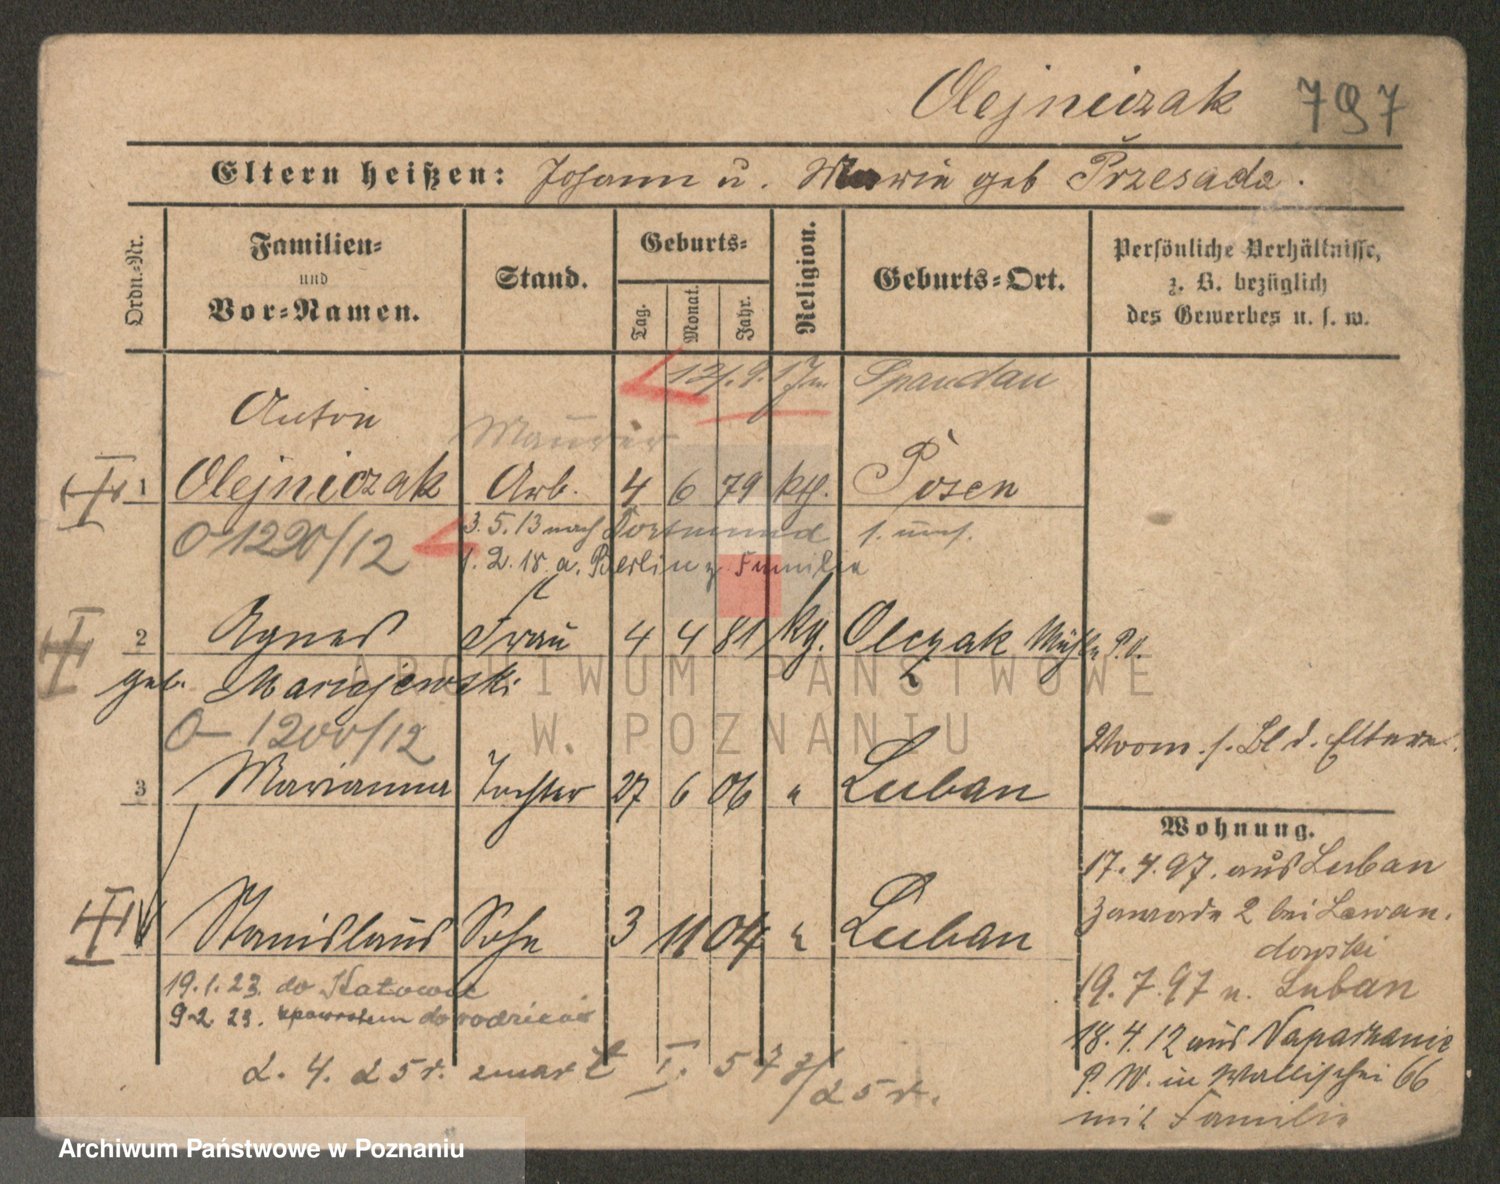 Olejniczak 797
Eltern heißen: Johann u. Marie geb Przesada.
Ordn.-Nr.
Familien-
und
Vor-Namen.
Stand.
Geburts-
Tag.
Monat.
Jahr.
Religion.
Geburts-Ort.
Persönliche Verhältnisse,
z. B. bezüglich
des Gewerbes u. s. w.
Spandau
Anton
Maurer
1 Olejniczak Arb. 4 6 79 kth. Posen
O-1220/12
3.5.13 nach Dortmund
1.2.18. a. Berlin z Familie
2 Agnes Frau 4 4 81 kg. Olczak Mühle P.O.
geb. Maciejewski
O-1200/12
3 Marianna Tochter 27 6 06 " Luban
Stanislaus Sohn 3 11 04 " Luban
19.1.23. do Katowic
9.2 23. zpowrotem do rodziców
2. 4. 25 r. zmarł I. 573/25 r.
Vorm. s. Bl d. Eltern.
Wohnung.
17.4.97. aus Luban
2 bei Lewan-
dowski
19.7.97 n. Luban
18.4.12 aus Naparzanie
P. W. in Wallischei 66
mit Familie
ARCHIWUM PAŃSTWOWE
W POZNANIU
Archiwum Państwowe w Poznaniu